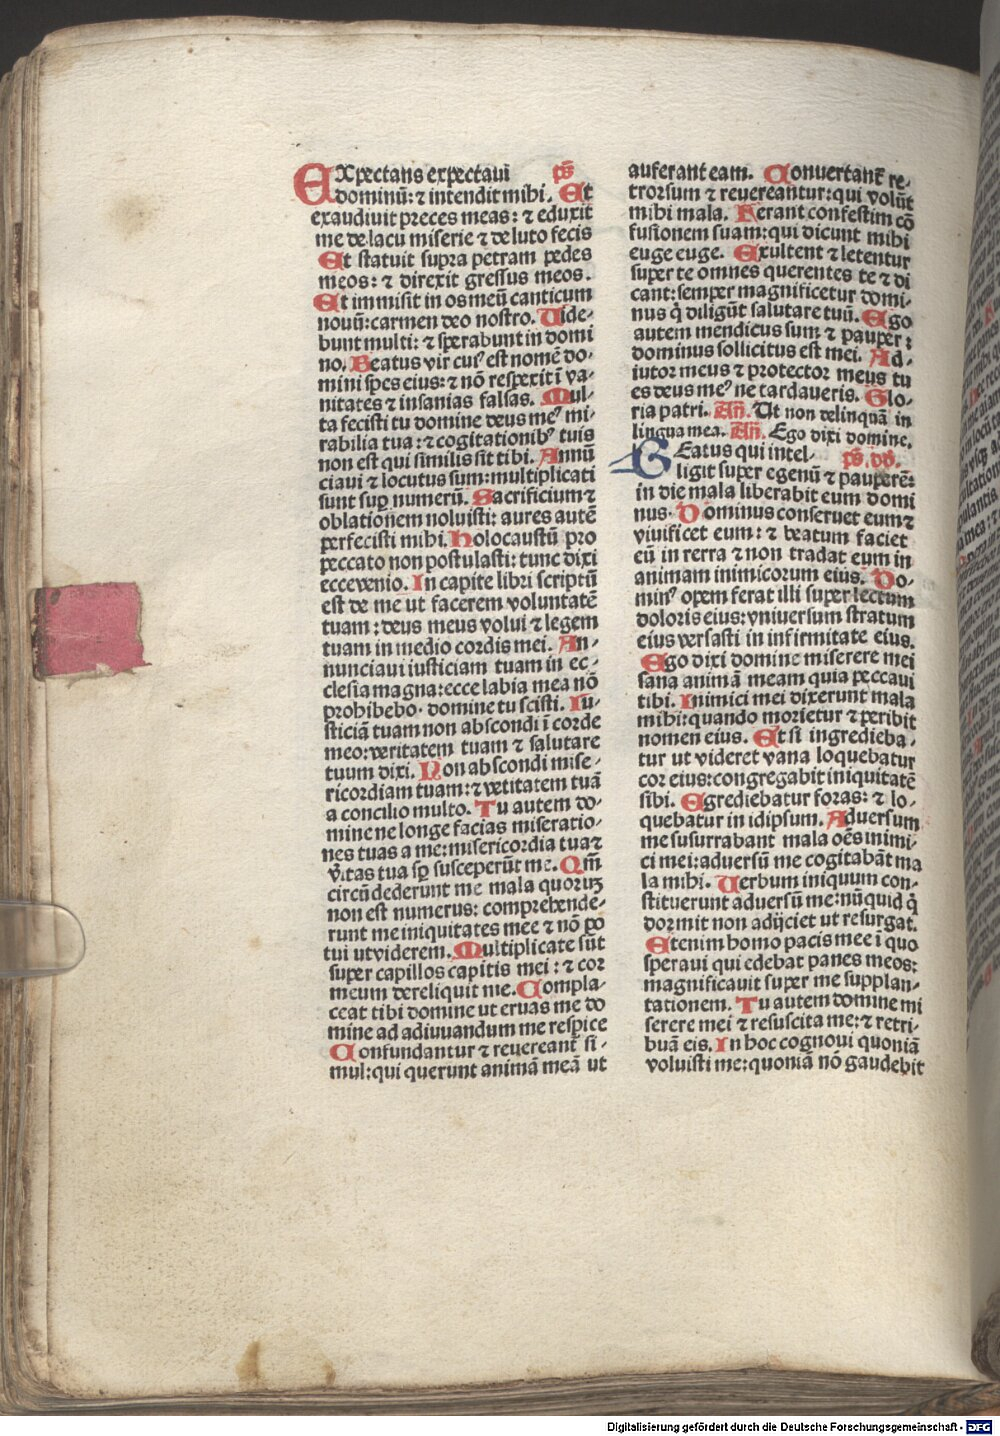 Expectans expectaui ps̄
dominū: ⁊ intendit mihi. Et
exaudiuit preces meas: ⁊ eduxit
me de lacu miserie ⁊ de luto fecis
Et statuit supra petram pedes
meos: ⁊ direxit gressus meos.
Et immisit in os meū canticum
nouū: carmen deo nostro. Uide-
bunt multi: ⁊ sperabunt in domi
no. Beatus vir cuiꝰ est nomē do-
mini spes eius: ⁊ nō respexit ī va-
nitates ⁊ insanias falsas. Mul-
ta fecisti tu domine deus meꝰ mi-
rabilia tua: ⁊ cogitationibꝰ tuis
non est qui similis sit tibi. Annū
ciaui ⁊ locutus sum: multiplicati
sunt suꝑ numerū. Sacrificium ⁊
oblationem noluisti: aures autē
perfecisti mihi. Holocaustū pro
peccato non postulasti: tunc dixi
ecce venio. In capite libri scriptū
est de me ut facerem voluntatē
tuam: deus meus volui ⁊ legem
tuam in medio cordis mei. An-
nunciaui iusticiam tuam in ec-
clesia magna: ecce labia mea nō
prohibebo. domine tu scisti. Iu-
sticiā tuam non abscondi ī corde
meo: veritatem tuam ⁊ salutare
tuum dixi. Non abscondi mise-
ricordiam tuam: ⁊ vetitatem tuā
a concilio multo. Tu autem do-
mine ne longe facias miseratio-
nes tuas a me: misericordia tua ⁊
v̄itas tua sꝑ susceperūt me. Qm̄
circūdederunt me mala quoruꝫ
non est numerus: comprehende-
runt me iniquitates mee ⁊ nō po
tui ut viderem. Multiplicate sūt
super capillos capitis mei: ⁊ cor
meum dereliquit me. Compla-
ceat tibi domine ut eruas me do
mine ad adiuuandum me respice
Confundantur ⁊ reuereant̄ si-
mul: qui querunt animā meā ut
auferant eam. Conuertant̄ re-
trorsum ⁊ reuereantur: qui volūt
mihi mala. Ferant confestim cō
fusionem suam: qui dicunt mihi
euge euge. Exultent ⁊ letentur
super te omnes querentes te ⁊ di
cant: semper magnificetur domi-
nus q̄ diligūt salutare tuū. Ego
autem mendicus sum ⁊ pauper:
dominus sollicitus est mei. Ad-
iutor meus ⁊ protector meus tu
es deus meꝰ ne tardaueris. Glo-
ria patri. Añ. Ut non delinquā in
lingua mea. Añ. Ego dixi domine.
Beatus qui intel- ps̄. dd̄.
ligit super egenū ⁊ pauperē:
in die mala liberabit eum domi
nus. Dominus conseruet eum ⁊
viuificet eum: ⁊ beatum faciet
eū in rerra ⁊ non tradat eum in
animam inimicorum eius. Do-
minꝰ opem ferat illi super lectum
doloris eius: vniuersum stratum
eius versasti in infirmitate eius.
Ego dixi domine miserere mei
sana animā meam quia peccaui
tibi. Inimici mei dixerunt mala
mihi: quando morietur ⁊ peribit
nomen eius. Et si ingredieba-
tur ut videret vana loquebatur
cor eius: congregabit iniquitatē
sibi. Egrediebatur foras: ⁊ lo-
quebatur in idipsum. Aduersum
me susurrabant mala oēs inimi-
ci mei: aduersū me cogitabāt ma
la mihi. Uerbum iniquum con-
stituerunt aduersū me: nūquid q̄
dormit non adijciet ut resurgat.
Etenim homo pacis mee ī quo
speraui qui edebat panes meos:
magnificauit super me supplan-
tationem. Tu autem domine mi
serere mei ⁊ resuscita me: ⁊ retri-
buā eis. In hoc cognoui quoniā
voluisti me: quoniā nō gaudebit
Digitalisierung gefördert durch die Deutsche Forschungsgemeinschaft - DFG